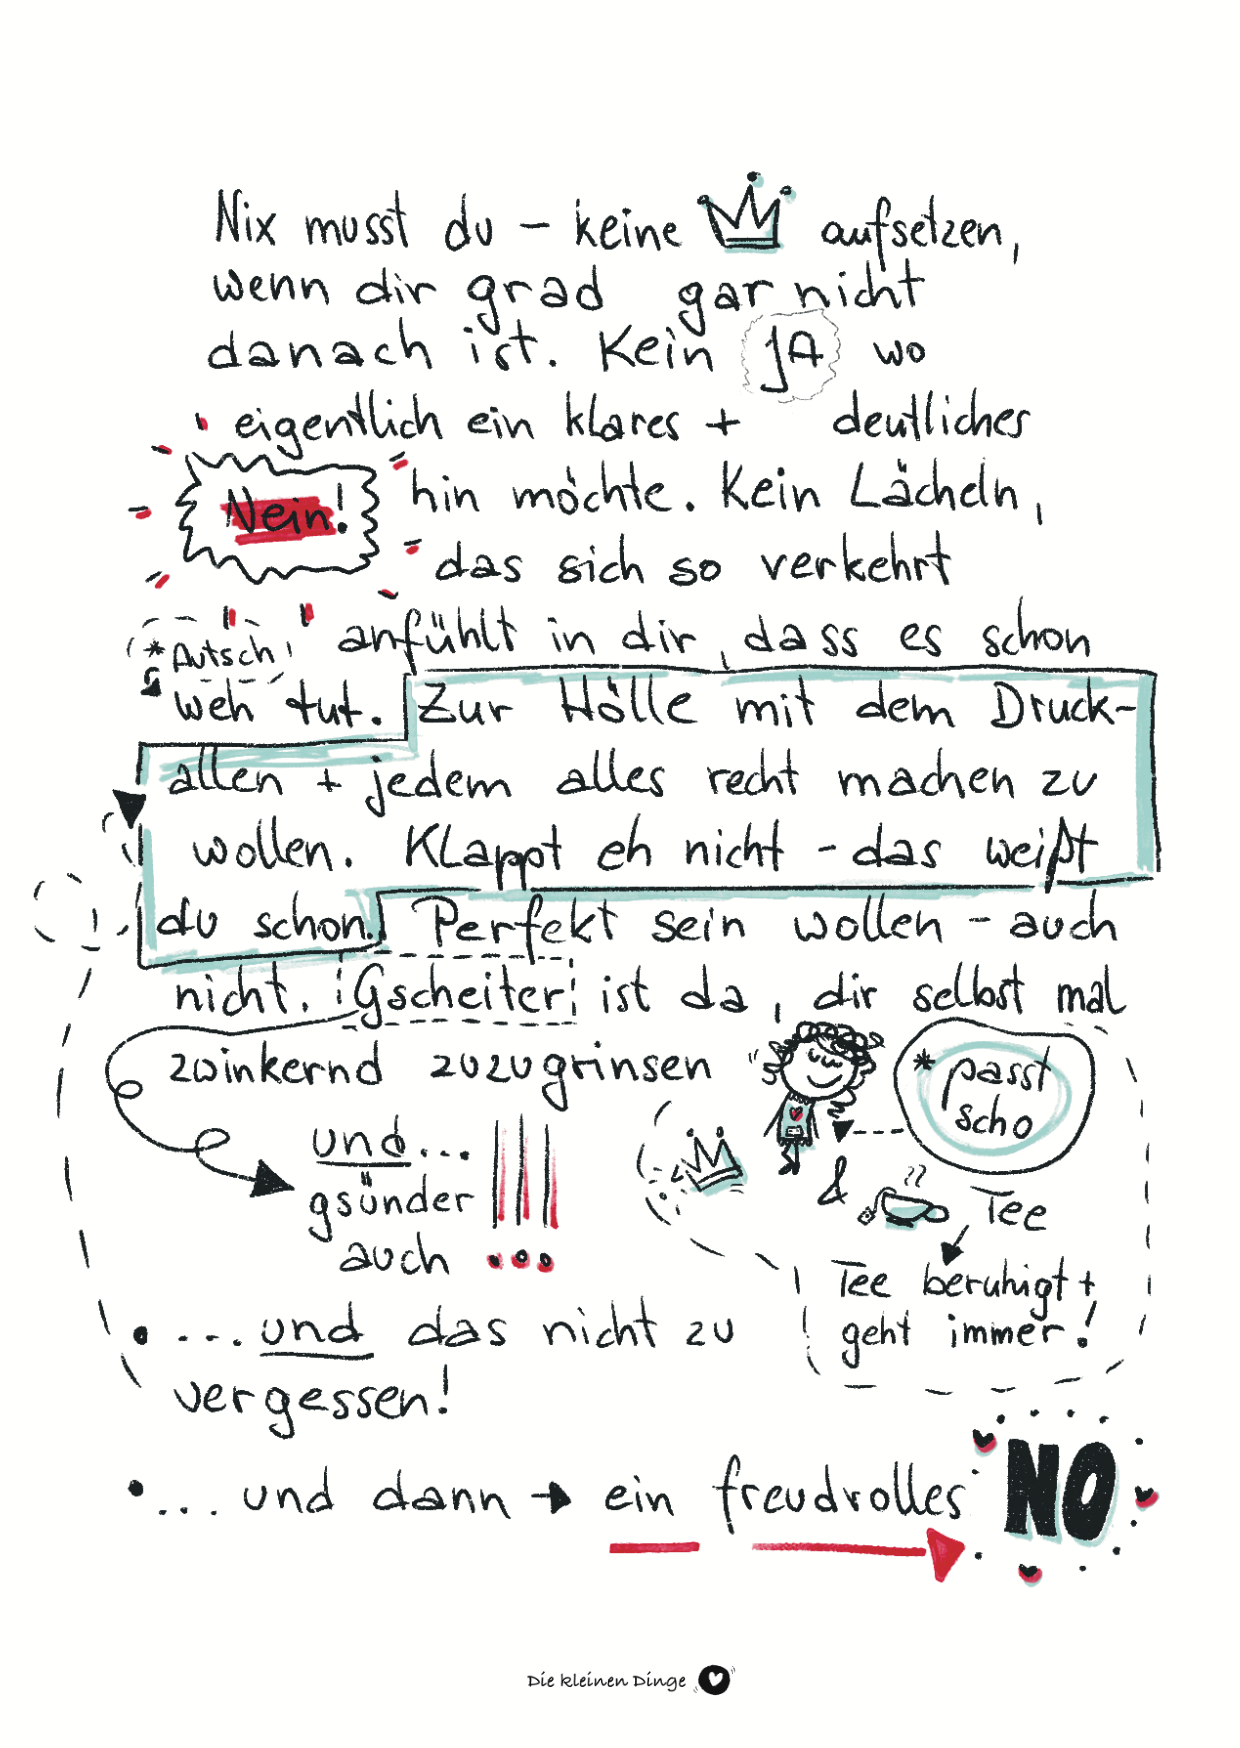 Nix musst du – keine aufsetzen,
wenn dir grad gar nicht
danach ist. Kein JA wo
eigentlich ein klares + deutliches
Nein! hin möchte. Kein Lächeln,
das sich so verkehrt
anfühlt in dir, dass es schon
*Autsch
weh tut. Zur Hölle mit dem Druck-
allen + jedem alles recht machen zu
wollen. Klappt eh nicht – das weißt
du schon. Perfekt sein wollen – auch
nicht. Gscheiter ist da, dir selbst mal
zwinkernd zuzugrinsen
* passt
scho
und...
gsünder
auch !!!
& Tee
Tee beruhigt +
geht immer!
• ... und das nicht zu
vergessen!
• ... und dann → ein freudvolles NO
Die kleinen Dinge